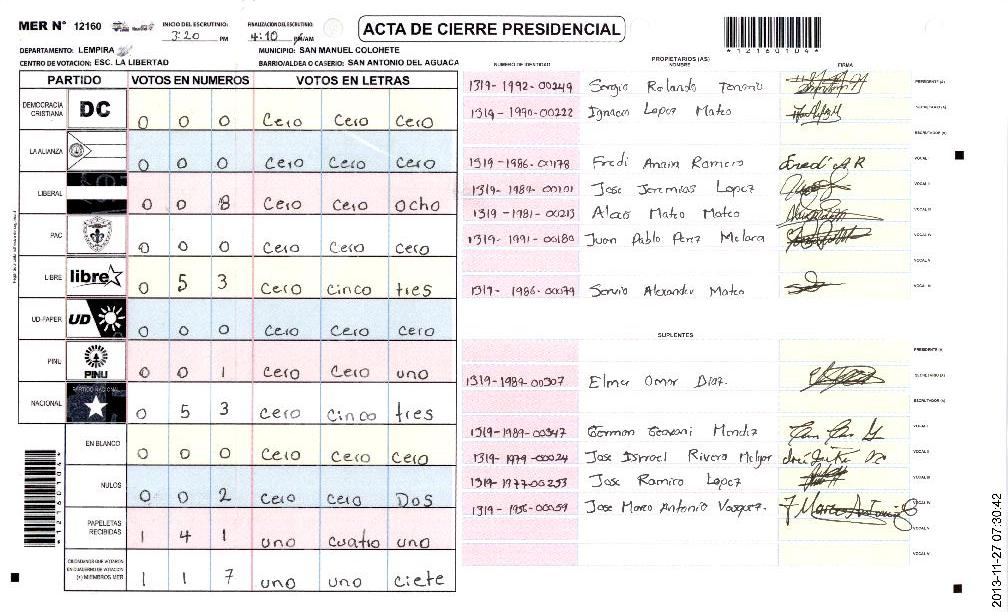 MER N° 12160 INICIO DEL ESCRUTINIO: 3:20 PM FINALIZACION DEL ESCRUTINIO: 4:10 PM/AM ACTA DE CIERRE PRESIDENCIAL
*12160104*
DEPARTAMENTO: LEMPIRA MUNICIPIO: SAN MANUEL COLOHETE
CENTRO DE VOTACION: ESC. LA LIBERTAD BARRIO/ALDEA O CASERIO: SAN ANTONIO DEL AGUACA
PARTIDO VOTOS EN NUMEROS VOTOS EN LETRAS
DEMOCRACIA CRISTIANA DC 0 0 0 Cero Cero Cero
LA ALIANZA 0 0 0 Cero Cero Cero
LIBERAL 0 0 8 Cero Cero ocho
PAC 0 0 0 Cero Cero Cero
LIBRE libre 0 5 3 Cero cinco tres
UD-FAPER UD 0 0 0 Cero Cero Cero
PINU PINU 0 0 1 Cero Cero uno
NACIONAL PARTIDO NACIONAL 0 5 3 Cero Cinco tres
EN BLANCO 0 0 0 Cero Cero Cero
NULOS 0 0 2 Cero Cero Dos
PAPELETAS RECIBIDAS 1 4 1 uno cuatro uno
CIUDADANOS QUE VOTARON EN CUADERNO DE VOTACION (+) MIEMBROS MER 1 1 7 uno uno ciete
*12160104*
PROPIETARIOS (AS)
NUMERO DE IDENTIDAD NOMBRE FIRMA
1319-1992-00249 Sergio Rolando PRESIDENTE (A)
1319-1990-00222 Ignacio Lopez Mateo SECRETARIO (A)
ESCRUTADOR (A)
1319-1986-00178 Fredi Anain Romero Fredi A R VOCAL I
1319-1989-00101 Jose Jeremias Lopez VOCAL II
1319-1981-00213 Mateo Mateo VOCAL III
1319-1991-00180 Juan Pablo Perez Melara VOCAL IV
VOCAL V
1319-1986-00079 Servio Alexander Mateo VOCAL VI
SUPLENTES
PRESIDENTE (A)
1319-1989-00307 Elmer Omar Diaz. SECRETARIO (A)
ESCRUTADOR (A)
1319-1989-00347 German Geovani VOCAL I
1319-1979-00024 Jose Ismael Rivera Melgar VOCAL II
1319-1977-00253 Jose Ramiro Lopez VOCAL III
1319-1956-00059 Jose Marco Antonio Vasquez. Marco Antonio VOCAL IV
VOCAL V
VOCAL VI
2013-11-27 07:30:42